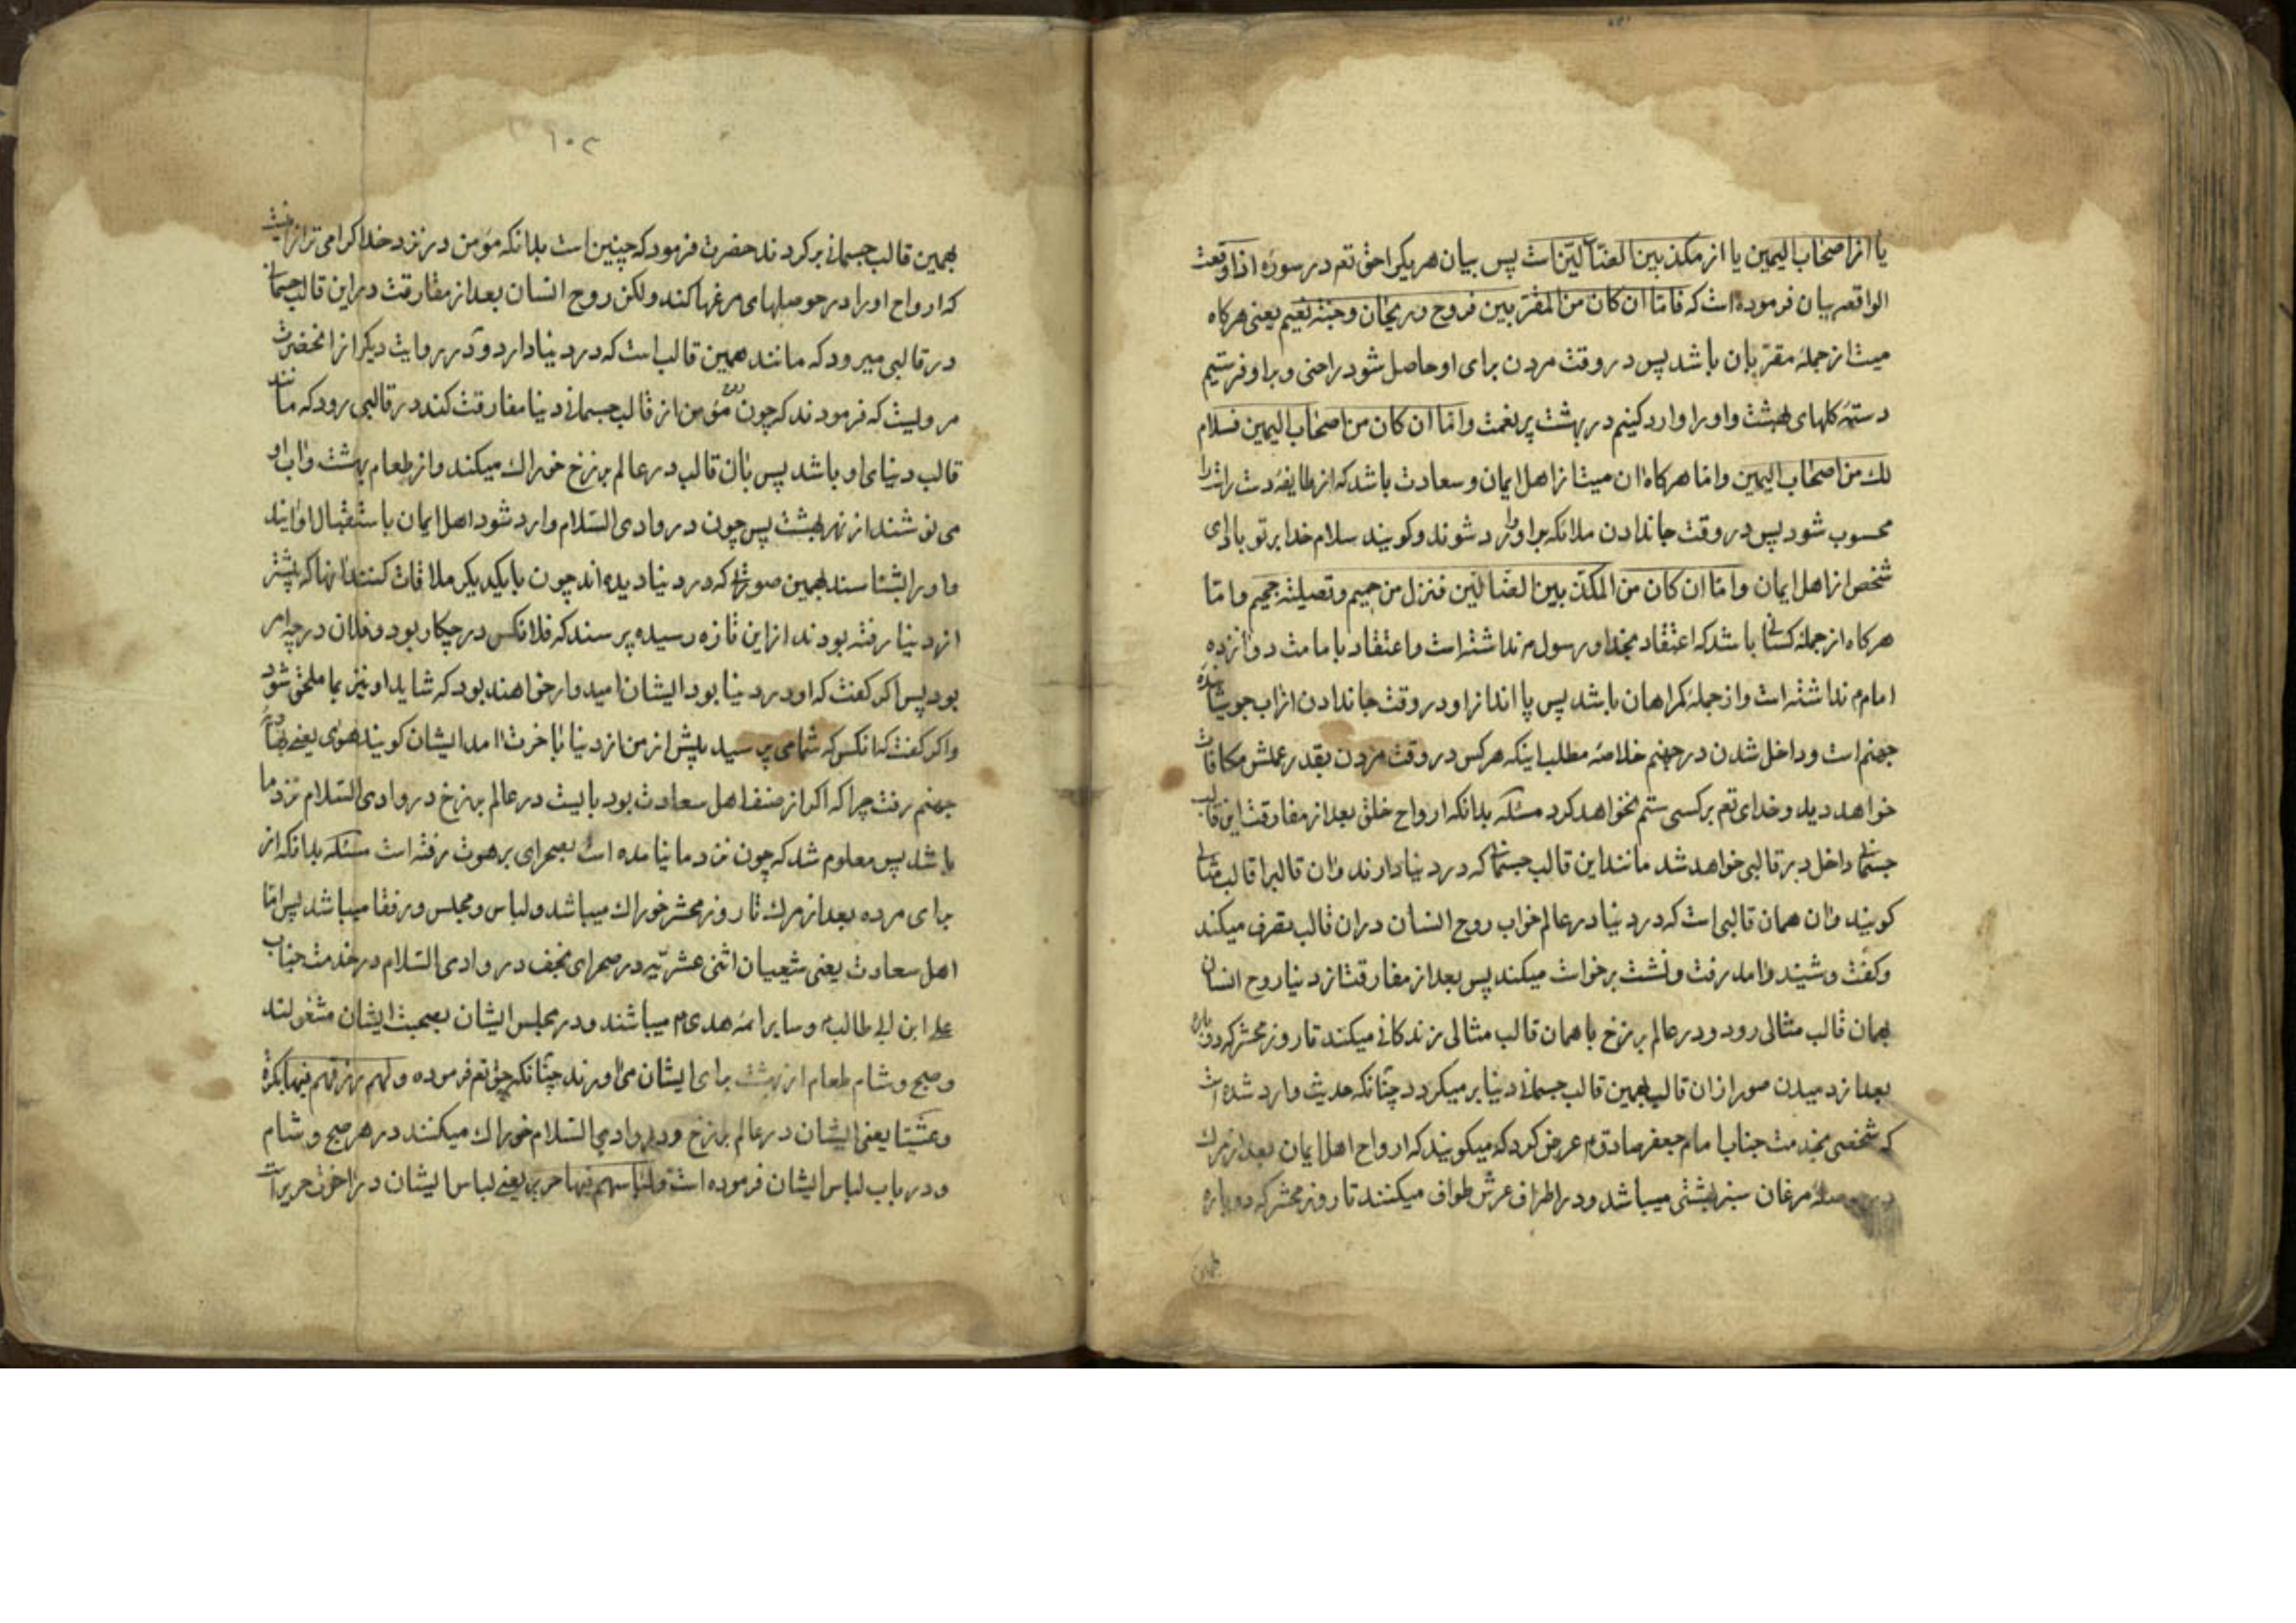 یا از اصحاب الیمین یا از مکذبین الضالین است پس بیان هر یکی را حق تع در سوره اذا وقعت
الواقعه بیان فرموده است که فاما ان کان من المقربین فروح و ریحان و جنة نعیم یعنی هرکاه
میت از جملهٔ مقربان باشد پس در وقت مردن برای او حاصل شود راحتی و برا و فرستیم
دستهٔ کلهای بهشت و او را وارد کنیم در بهشت پر نعمت و اما ان کان من اصحاب الیمین فسلام
لك من اصحاب الیمین و اما هرکاه ان میت از اهل ایمان و سعادت باشد که از طایفهٔ دست راست
محسوب شود پس در وقت جاندادن ملائکه براو وارد شوند و کویند سلام خدا بر تو باد ای
شخص از اهل ایمان و اما ان کان من المکذبین الضالین فنزل من حمیم و تصلیة جحیم و اما
هرکاه از جملهٔ کسانی باشد که اعتقاد بخدا و رسول نداشته است و اعتقاد بامامت دوانزده
امام م نداشته است و از جملهٔ کمراهان باشد پس پا انداز او در وقت جاندادن از اب جوشانندهٔ
جهنم است و داخل شدن در جهنم خلاصهٔ مطلب اینکه هرکس در وقت مردن بقدر عملش مکافات
خواهد دید و خدای تع بر کسی ستم نخواهد کرد مسئله بدانکه ارواح خلق بعد از مفارقت این قالب
جسمانی داخل در قالبی خواهد شد مانند این قالب جسمانی که در دنیا دارند و ان قالب را قالب مثالی
کویند و ان همان قالبی است که در دنیا در عالم خواب روح انسان در ان قالب تصرف میکند
و کفت و شیند و امد رفت و نشت برخواست میکند پس بعد از مفارقت از دنیا روح انسان
بهمان قالب مثالی رود و در عالم برزخ با همان قالب مثالی زندکانی میکند تا روز محشر که دوباره
بعد از دمیدن صور از ان قالب بهمین قالب جسمانی دنیا بر میکردد چنانکه حدیث وارد شده است
که شخصی بخدمت جناب امام جعفر صادق م عرض کرد که میکویند که ارواح اهل ایمان بعد از مرك
مرغان سبز بهشتی میباشد و در اطراف عرش طواف میکنند تا روز محشر که دوباره
۱۰۲
بهمین قالب جسمانی بر کردند حضرت فرمود که چنین است بدانکه مؤمن در نزد خدا کرامی تر از انست
که ارواح او را در حوصلهای مرغها کند ولکن روح انسان بعد از مفارقت در این قالب جسمانی
در قالبی میرود که مانند همین قالب است که در دنیا دارد و در روایت دیکر از انحضرت
مرویست که فرمودند که چون روح مؤمن از قالب جسمانی دنیا مفارقت کند در قالبی رود که مانند
قالب دنیای او باشد پس بان قالب در عالم برزخ خوراك میکند و از طعام بهشت و اب او
می نوشند از نهر بهشت پس چون در وادی السلام وارد شود اهل ایمان باستقبال او ایند
و او را بشناسند بهمین صورتی که در دنیا دیده اند چون با یکدیکر ملاقات کنند انها که پیشتر
از دنیا رفته بودند از این تازه رسیده پرسند که فلانکس در چکار بود و فلان در چه امر
بود پس اکر کفت که او در دنیا بود ایشان امیدوار خواهند بود که شاید او نیز بما ملحق شود
و اکر کفت که انکس که شما می پرسید پیش از من از دنیا باخرت امد ایشان کویند هوی یعنی
جهنم رفت چرا که اکر از صنف اهل سعادت بود بایست در عالم برزخ در وادی السلام نزد ما
باشد پس معلوم شد که چون نزد ما نیامده است بصحرای برهوت رفته است مسئله بدانکه از
برای مرده بعد از مرك تا روز محشر خوراك میباشد و لباس و مجلس و رفقا میباشد پس اما
اهل سعادت یعنی شعیان اثنی عشریه در صحرای نجف در وادی السلام در خدمت جناب
علی ابن ابی طالب و سایر ائمه هدی م میباشند و در مجلس ایشان بصحبت ایشان مشغولند
و صبح و شام طعام از بهشت برای ایشان می اورند چنانکه حق تع فرموده و لهم رزقهم فیها بکرة
و عشیا یعنی ایشان در عالم برزخ و در وادی السلام خوراك میکنند در هر صبح و شام
و در باب لباس ایشان فرموده است و لباسهم فیها حریر یعنی لباس ایشان در اخرت حریر است